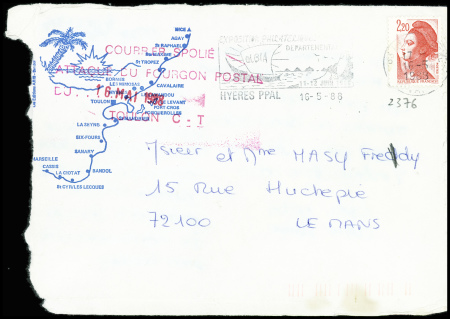 NICE
AGAY
ST RAPHAEL
ST TROPEZ
CAVALAIRE
BORMES
LES MIMOSAS
LE LEVANT
PORT CROS
PORQUEROLLES
TOULON
LA SEYNE
SIX FOURS
SANARY
BANDOL
MARSEILLE
CASSIS
LA CIOTAT
St CYR/LES LECQUES
COURRIER SPOLIÉ
ATTAQUE DU FOURGON POSTAL
DU 16 MAI 1988
TOULON C-T
EXPOSITION PHILATELIQUE
DEPARTEMENTALE
OLBIA
HYERES PPAL 16-5-88
2,20
2376
Msieur et Mme MASY Freddy
15 Rue Huchepie
72100 LE MANS